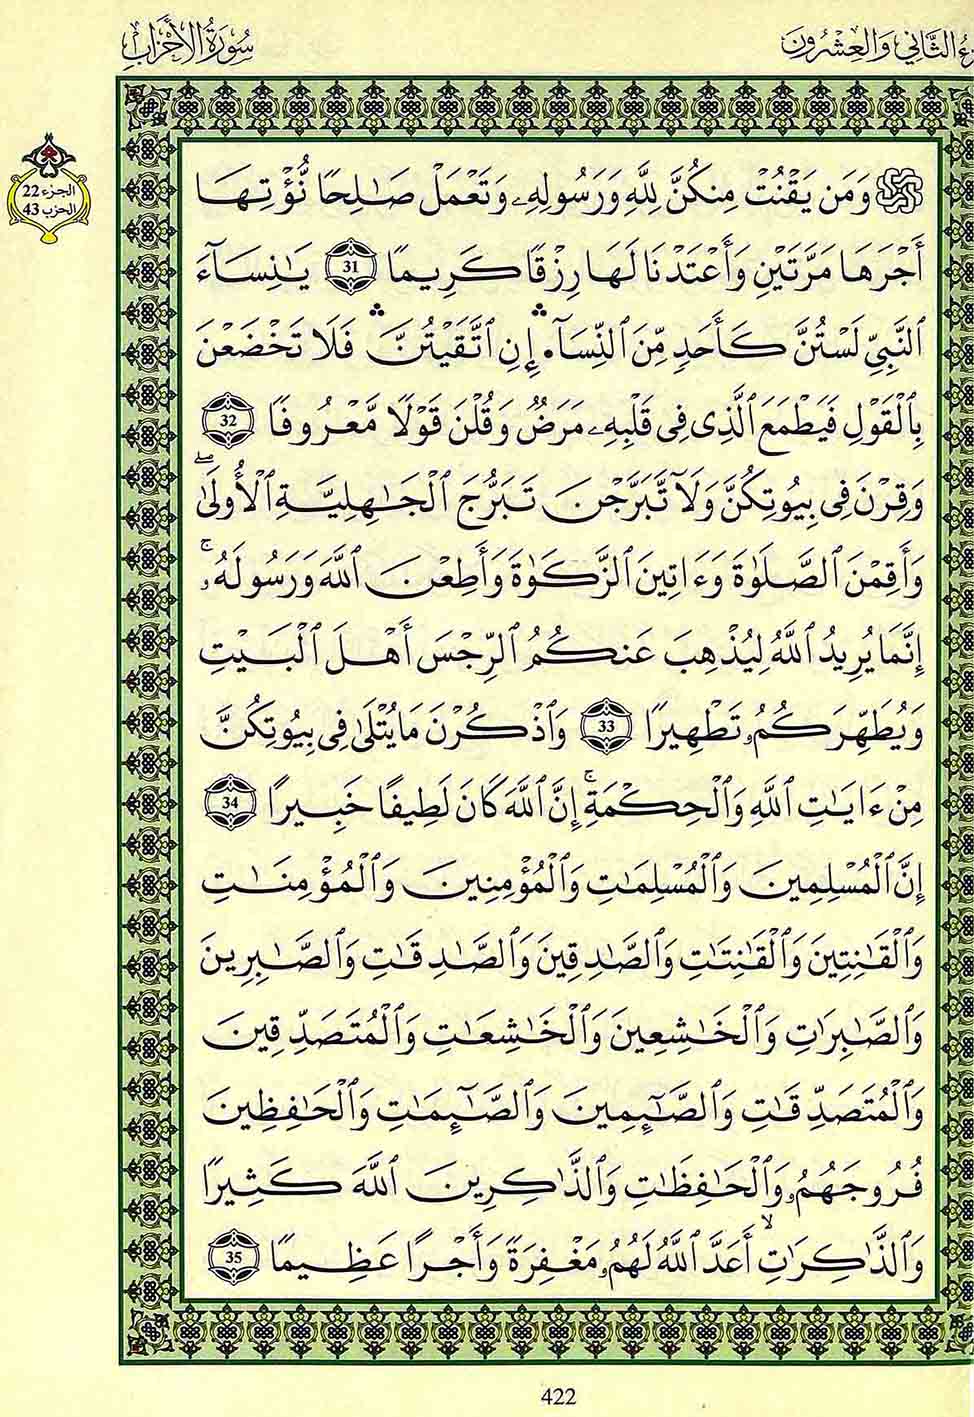 زء الثَّانِي وَالعِشْرُونَ
سُورَةُ الأَحْزَابِ
الجزء 22
الحزب 43
۞ وَمَن يَقْنُتْ مِنكُنَّ لِلَّهِ وَرَسُولِهِۦ وَتَعْمَلْ صَٰلِحًا نُّؤْتِهَا
أَجْرَهَا مَرَّتَيْنِ وَأَعْتَدْنَا لَهَا رِزْقًا كَرِيمًا 31 يَٰنِسَآءَ
ٱلنَّبِيِّ لَسْتُنَّ كَأَحَدٍ مِّنَ ٱلنِّسَآ• إِنِ ٱتَّقَيْتُنَّ ۛ فَلَا تَخْضَعْنَ
بِٱلْقَوْلِ فَيَطْمَعَ ٱلَّذِى فِى قَلْبِهِۦ مَرَضٌ وَقُلْنَ قَوْلًا مَّعْرُوفًا 32
وَقِرْنَ فِى بِيُوتِكُنَّ وَلَآ تَّبَرَّجْنَ تَبَرُّجَ ٱلْجَٰهِلِيَّةِ ٱلْأُولَىٰ ۖ
وَأَقِمْنَ ٱلصَّلَوٰةَ وَءَاتِينَ ٱلزَّكَوٰةَ وَأَطِعْنَ ٱللَّهَ وَرَسُولَهُۥ ۚ
إِنَّمَا يُرِيدُ ٱللَّهُ لِيُذْهِبَ عَنكُمُ ٱلرِّجْسَ أَهْلَ ٱلْبَيْتِ
وَيُطَهِّرَكُمُۥ تَطْهِيرًا 33 وَٱذْكُرْنَ مَا يُتْلَىٰ فِى بِيُوتِكُنَّ
مِنْ ءَايَٰتِ ٱللَّهِ وَٱلْحِكْمَةِ ۚ إِنَّ ٱللَّهَ كَانَ لَطِيفًا خَبِيرًا 34
إِنَّ ٱلْمُسْلِمِينَ وَٱلْمُسْلِمَٰتِ وَٱلْمُؤْمِنِينَ وَٱلْمُؤْمِنَٰتِ
وَٱلْقَٰنِتِينَ وَٱلْقَٰنِتَٰتِ وَٱلصَّٰدِقِينَ وَٱلصَّٰدِقَٰتِ وَٱلصَّٰبِرِينَ
وَٱلصَّٰبِرَٰتِ وَٱلْخَٰشِعِينَ وَٱلْخَٰشِعَٰتِ وَٱلْمُتَصَدِّقِينَ
وَٱلْمُتَصَدِّقَٰتِ وَٱلصَّٰٓئِمِينَ وَٱلصَّٰٓئِمَٰتِ وَٱلْحَٰفِظِينَ
فُرُوجَهُمُۥ وَٱلْحَٰفِظَٰتِ وَٱلذَّٰكِرِينَ ٱللَّهَ كَثِيرًا
وَٱلذَّٰكِرَٰتِ ۙ أَعَدَّ ٱللَّهُ لَهُمُۥ مَغْفِرَةً وَأَجْرًا عَظِيمًا 35
422